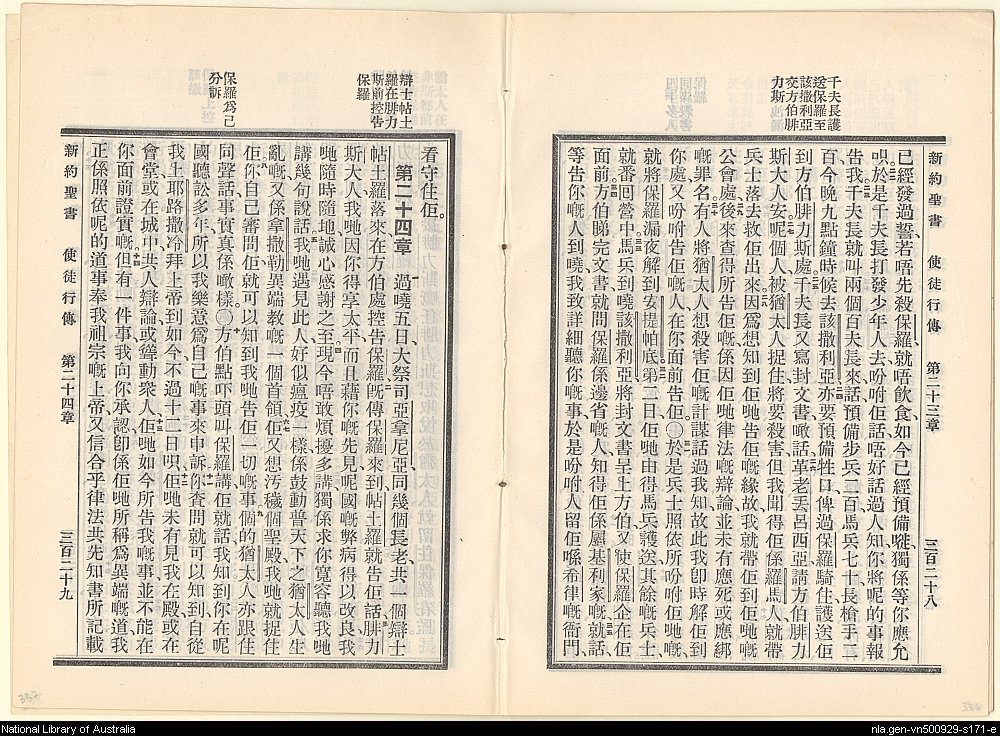 新約聖書 使徒行傳 第二十三章 三百二十八
千夫長護
送保羅至
該撒利亞
交方伯腓
力斯
已經發過誓若唔先殺保羅就唔飲食如今已經預備嘥獨係等你應允
唄於是千夫長打發少年人去吩咐佢話唔好話過人知你將呢的事報
告我千夫長就叫兩個百夫長來話預備步兵二百馬兵七十長槍手二
百今晚九點鐘時候去該撒利亞亦要預備牲口俾過保羅騎住護送佢
到方伯腓力斯處千夫長又寫封文書噉話革老丟呂西亞請方伯腓力
斯大人安呢個人被猶太人捉住將要殺害但我聞得佢係羅馬人就帶
兵士落去救佢出來因爲想知到佢哋告佢嘅緣故我就帶佢到佢哋嘅
公會處後來查得所告佢嘅係因佢哋律法嘅辯論並未有應死或應綁
嘅罪名有人將猶太人想殺害佢嘅計謀話過我知故此我卽時解佢到
你處又吩咐告佢嘅人在你面前告佢〇於是兵士照依所吩咐佢哋嘅
就將保羅漏夜解到安提帕底第二日佢哋由得馬兵護送其餘嘅兵士
就番囘營中馬兵到嘵該撒利亞將封文書呈上方伯又使保羅企在佢
面前方伯睇完文書就問保羅係邊省嘅人知得佢係屬基利家嘅就話
等告你嘅人到嘵我致詳細聽你嘅事於是吩咐人留佢喺希律嘅衙門
辯士帖土
羅在腓力
斯前控告
保羅
保羅爲己
分訴
看守住佢
第二十四章 過嘵五日大祭司亞拿尼亞同幾個長老共一個辯士
帖土羅落來在方伯處控告保羅旣傳保羅來到帖土羅就告佢話腓力
斯大人我哋因你得享太平而且藉你嘅先見呢國嘅弊病得以改良我
哋隨時隨地誠心感謝之至現今唔敢煩擾多講獨係求你寬容聽我哋
講幾句說話我哋遇見此人好似瘟疫一樣係鼓動普天下之猶太人生
亂嘅又係拿撒勒異端教嘅一個首領佢又想汚穢個聖殿我哋就捉住
佢你自己審問佢就可以知到我哋告佢一切嘅事個的猶太人亦跟住
同聲話事實眞係噉樣〇方伯點吓頭叫保羅講佢就話我知到你在呢
國聽訟多年所以我樂意爲自己嘅事來申訴你查問就可以知到自從
我上耶路撒冷拜上帝到如今不過十二日唄佢哋未有見我在殿或在
會堂或在城中共人辯論或聳動衆人佢哋如今所告我嘅事並不能在
你面前證實嘅但有一件事我向你承認卽係佢哋所稱爲異端嘅道我
正係照依呢的道事奉我祖宗嘅上帝又信合乎律法共先知書所記載
新約聖書 使徒行傳 第二十四章 三百二十九
337
336
National Library of Australia
nla.gen-vn500929-s171-e